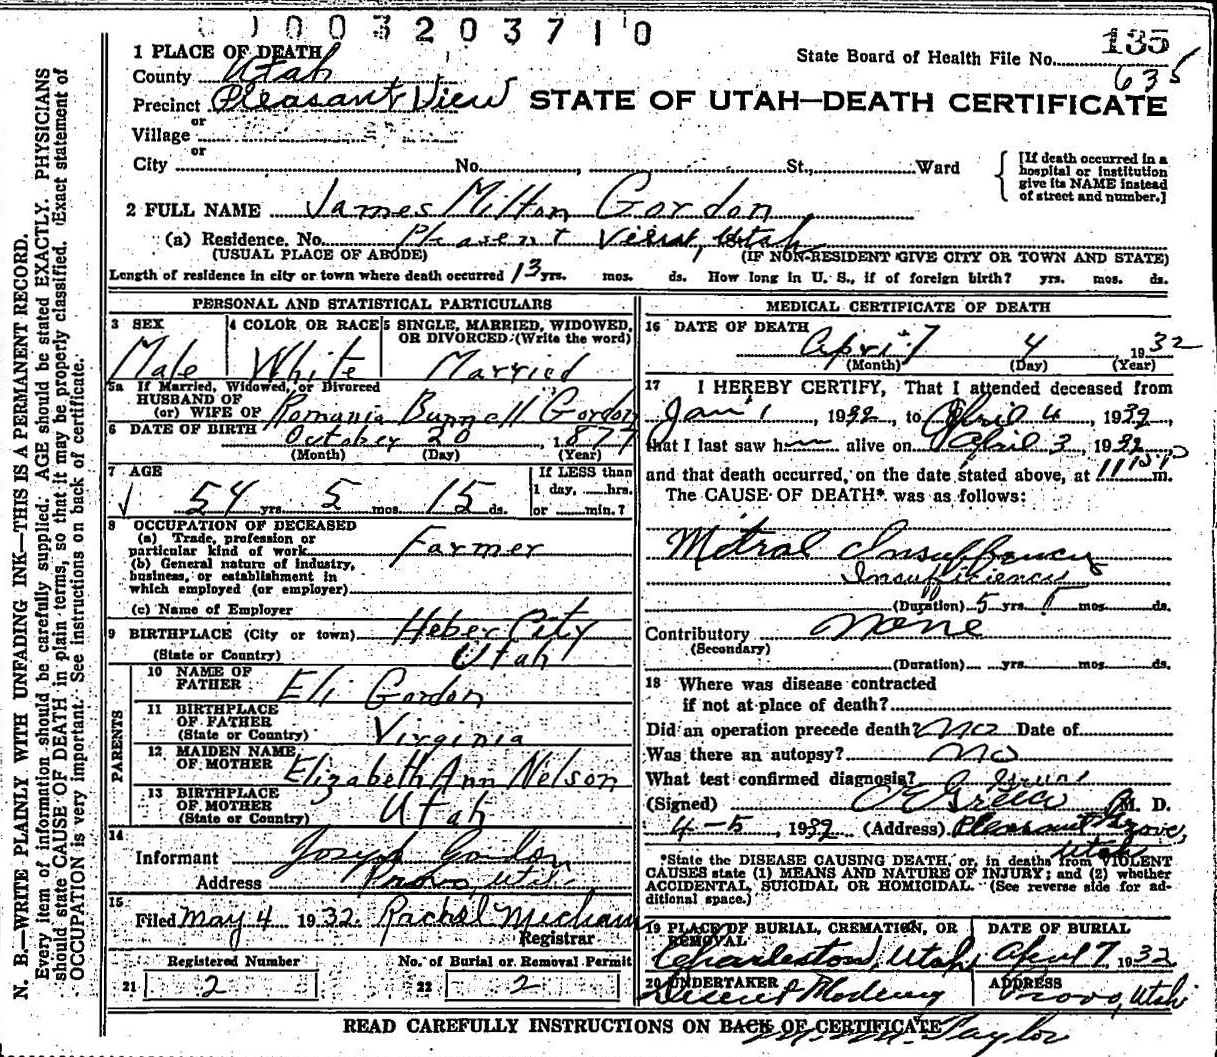 0 0 3 2 0 3 7 1 0
135
1 PLACE OF DEATH
State Board of Health File No.
635
County Utah
Precinct Pleasant View
STATE OF UTAH—DEATH CERTIFICATE
or
Village
or
City No. , St., Ward
[If death occurred in a hospital or institution give its NAME instead of street and number.]
2 FULL NAME James Milton Gordon
(a) Residence. No. Pleasent View, Utah
(USUAL PLACE OF ABODE) (IF NON-RESIDENT GIVE CITY OR TOWN AND STATE)
Length of residence in city or town where death occurred 13 yrs. mos. ds. How long in U. S., if of foreign birth? yrs. mos. ds.
PERSONAL AND STATISTICAL PARTICULARS
3 SEX 4 COLOR OR RACE 5 SINGLE, MARRIED, WIDOWED, OR DIVORCED (Write the word)
Male White Married
5a If Married, Widowed, or Divorced
HUSBAND OF
(or) WIFE OF Romania Bunnell Gordon
6 DATE OF BIRTH October 20, 1877
(Month) (Day) (Year)
7 AGE If LESS than
54 yrs. 5 mos. 15 ds. 1 day, hrs.
or min.?
8 OCCUPATION OF DECEASED
(a) Trade, profession or
particular kind of work Farmer
(b) General nature of industry,
business, or establishment in
which employed (or employer)
(c) Name of Employer
9 BIRTHPLACE (City or town) Heber City
(State or Country) Utah
PARENTS
10 NAME OF
FATHER Eli Gordon
11 BIRTHPLACE
OF FATHER
(State or Country) Virginia
12 MAIDEN NAME
OF MOTHER Elizabeth Ann Nelson
13 BIRTHPLACE
OF MOTHER
(State or Country) Utah
14
Informant Joseph Gordon
Address Provo, Utah
15
Filed May 4 1932. Rachel Mecham
Registrar
Registered Number No. of Burial or Removal Permit
21 2 22 2
MEDICAL CERTIFICATE OF DEATH
16 DATE OF DEATH
April 4 1932
(Month) (Day) (Year)
17 I HEREBY CERTIFY, That I attended deceased from
Jan 1, 1932, to April 4, 1932,
that I last saw h alive on April 3, 1932
and that death occurred, on the date stated above, at 11:15 P m.
The CAUSE OF DEATH* was as follows:
Mitral
Insufficiency
(Duration) 5 yrs. mos. ds.
Contributory None
(Secondary)
(Duration) yrs. mos. ds.
18 Where was disease contracted
if not at place of death?
Did an operation precede death? No Date of
Was there an autopsy? No
What test confirmed diagnosis?
(Signed) M. D.
4-5, 1932 (Address) Pleasant Grove, Utah
*State the DISEASE CAUSING DEATH, or, in deaths from VIOLENT
CAUSES state (1) MEANS AND NATURE OF INJURY; and (2) whether
ACCIDENTAL, SUICIDAL OR HOMICIDAL. (See reverse side for ad-
ditional space.)
19 PLACE OF BURIAL, CREMATION, OR REMOVAL DATE OF BURIAL
Charleston, Utah April 7, 1932
20 UNDERTAKER ADDRESS
Provo, Utah
READ CAREFULLY INSTRUCTIONS ON BACK OF CERTIFICATE
Taylor
N. B.—WRITE PLAINLY WITH UNFADING INK—THIS IS A PERMANENT RECORD.
Every item of information should be carefully supplied. AGE should be stated EXACTLY. PHYSICIANS
should state CAUSE OF DEATH in plain terms, so that it may be properly classified. Exact statement of
OCCUPATION is very important. See instructions on back of certificate.